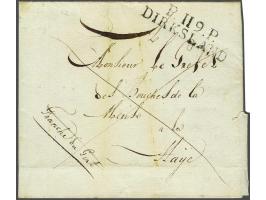 P.119.P.
DIRKSLAND
Monsieur le Prefet
des Bouches de la
Meuse
a la
Haye
Franche du Port